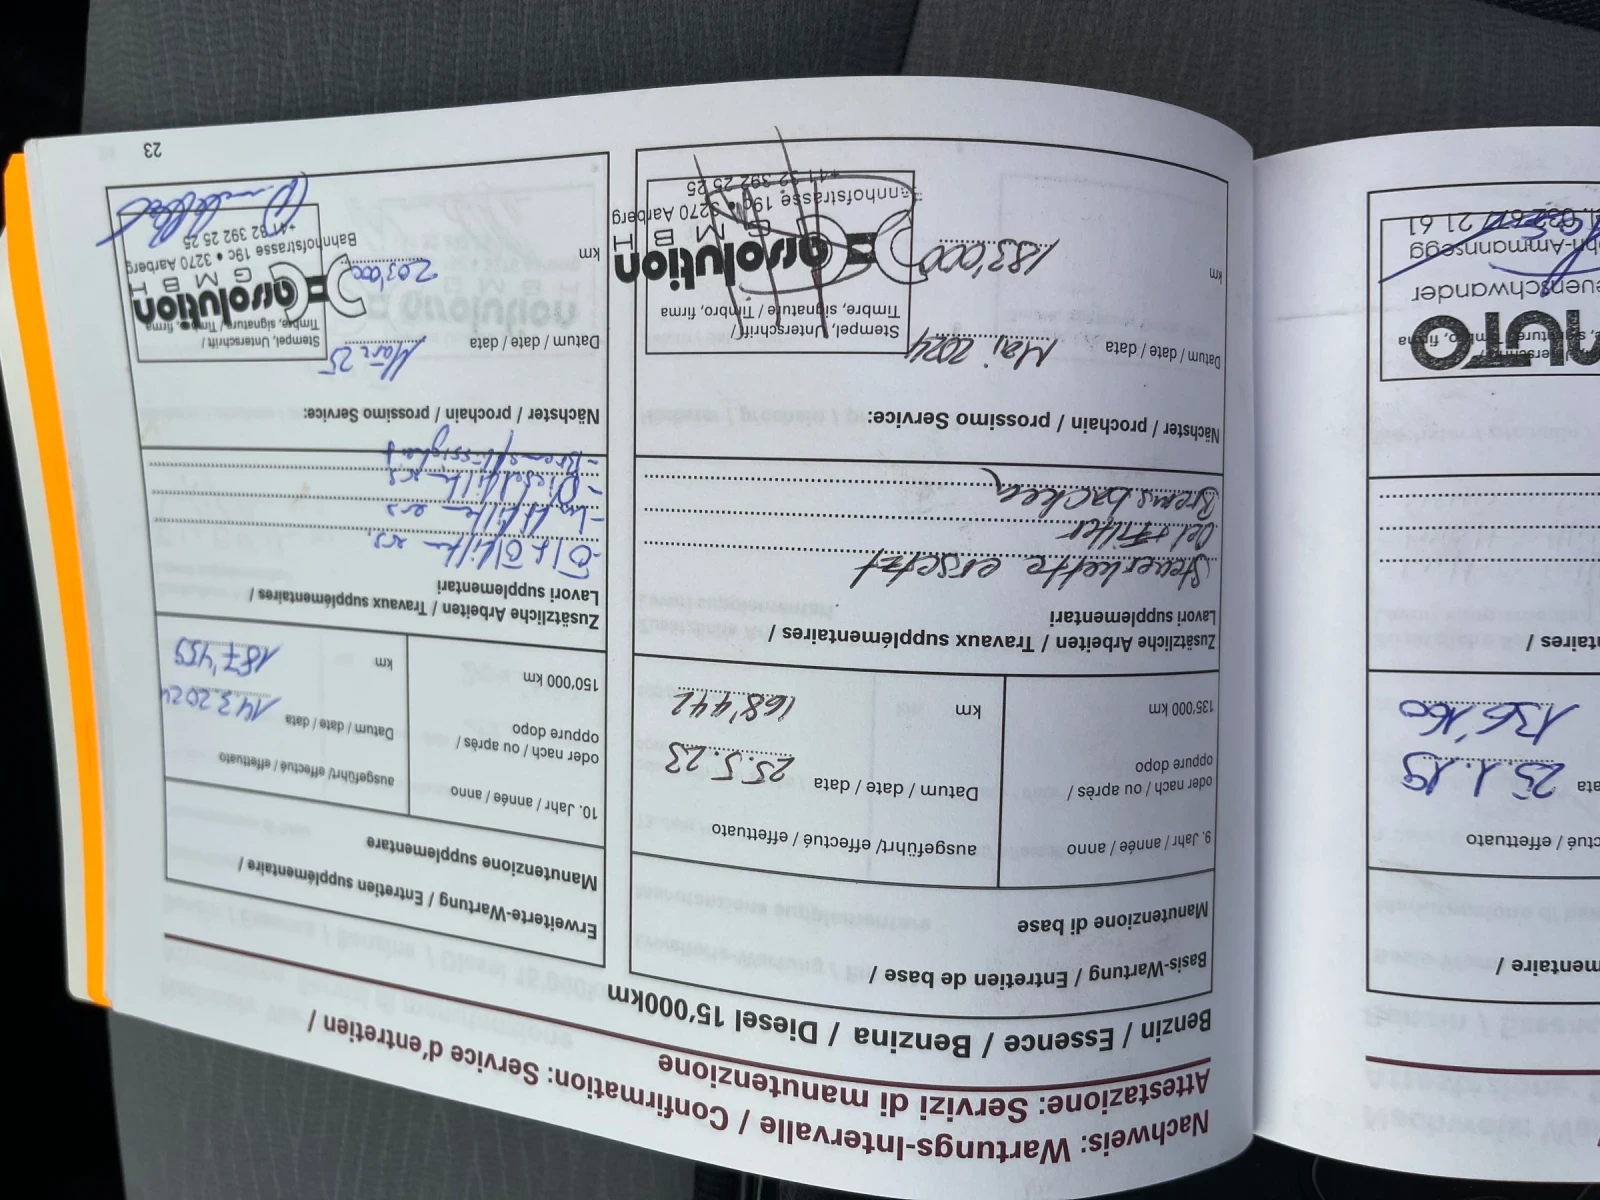 Nachweis: Wartungs-Intervalle / Confirmation: Service d'entretien /
Attestazione: Servizi di manutenzione
Benzin / Essence / Benzina / Diesel 15'000km
Basis-Wartung / Entretien de base /
Manutenzione di base
9. Jahr / année / anno
oder nach / ou après /
oppure dopo
135'000 km
ausgeführt/ effectué / effettuato
Datum / date / data 25.5.23
km 168'442
Zusätzliche Arbeiten / Travaux supplémentaires /
Lavori supplementari
Steuerkette ersetzt
Oel + Filter
Bremsbacken
Nächster / prochain / prossimo Service:
Datum / date / data Mai 2024
km 183'000
Stempel, Unterschrift /
Timbre, signature / Timbro, firma
Carsolution
GMBH
Bahnhofstrasse 19c • 3270 Aarberg
+41 32 392 25 25
Erweiterte-Wartung / Entretien supplémentaire /
Manutenzione supplementare
10. Jahr / année / anno
oder nach / ou après /
oppure dopo
150'000 km
ausgeführt/ effectué / effettuato
Datum / date / data 14.3.2024
km 187'459
Zusätzliche Arbeiten / Travaux supplémentaires /
Lavori supplementari
- Öl + Ölfilter ers.
- Luftfilter ers
- Dieselfilter ers.
- Bremsflüssigkeit
Nächster / prochain / prossimo Service:
Datum / date / data März 25
km 203'000
Stempel, Unterschrift /
Timbre, signature / Timbro, firma
Carsolution
GMBH
Bahnhofstrasse 19c • 3270 Aarberg
+41 32 392 25 25
23
mentaire /
ctué / effettuato
ata 23.1.19
136'160
taires /
AUTO
euenschwander
ohl-Ammannsegg
. 032 677 21 61